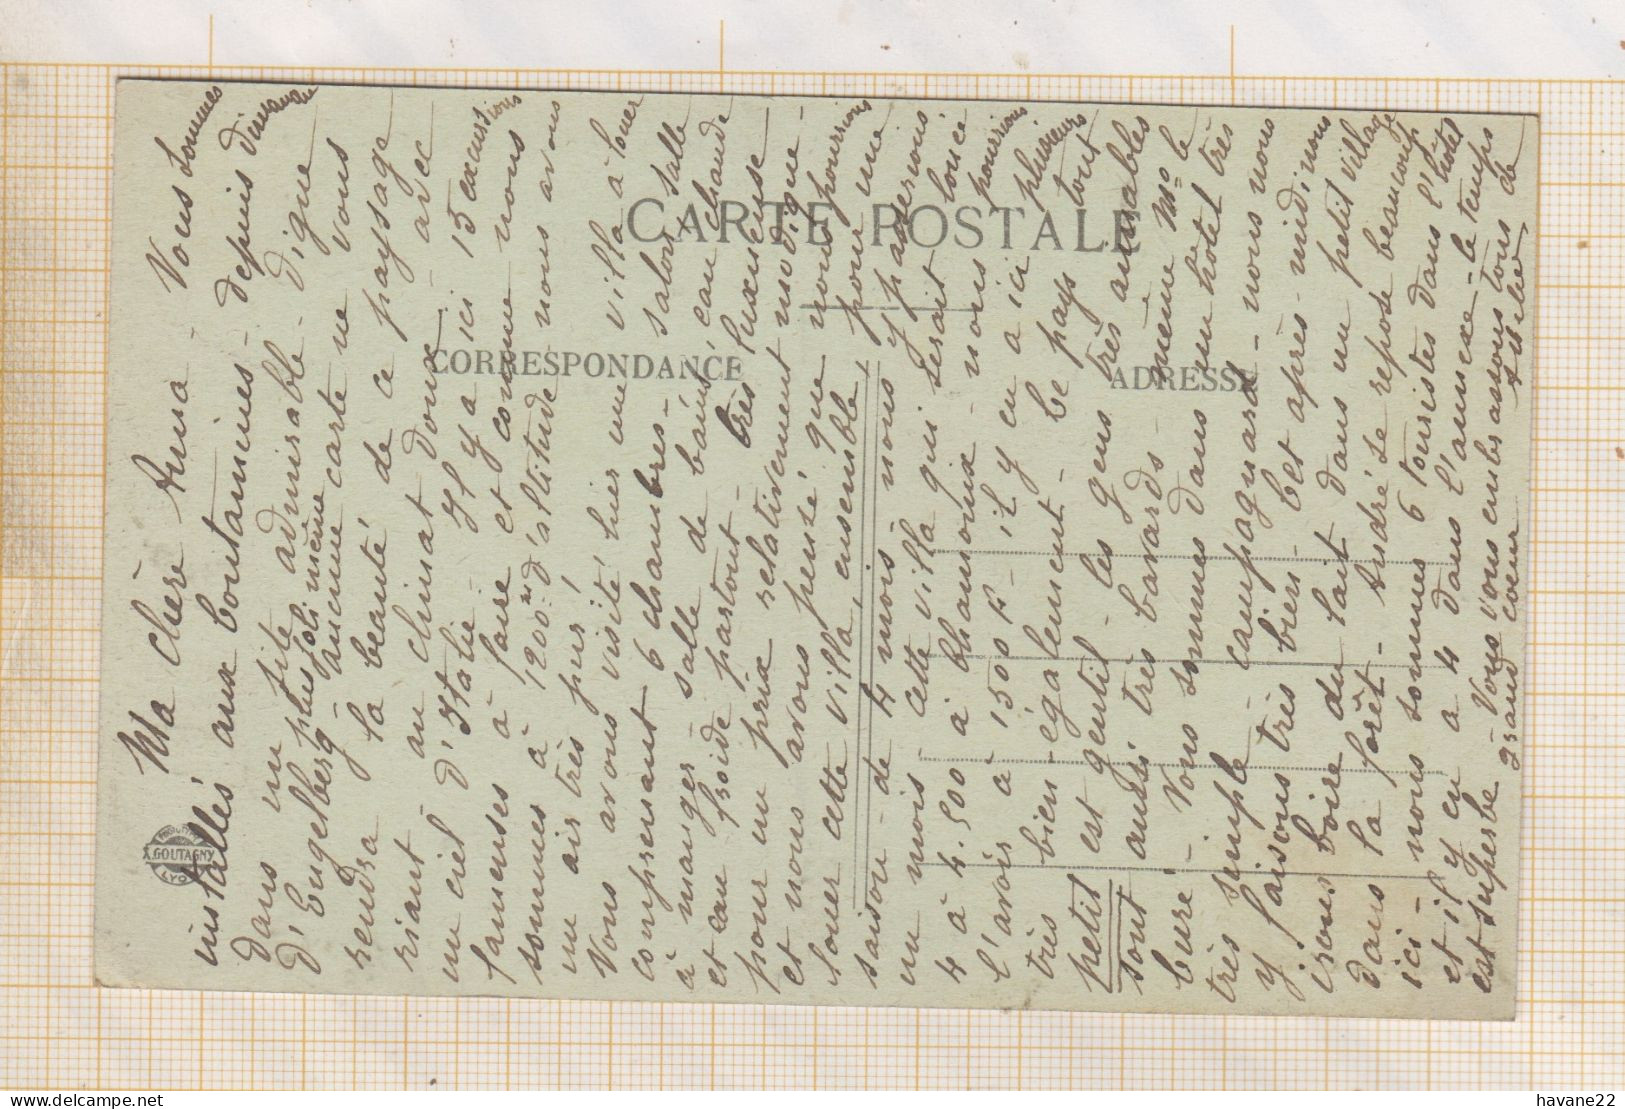 CARTE POSTALE
CORRESPONDANCE
ADRESSE
A. GOUTAGNY
LYON
Ma chère Anna - Nous sommes
installés aux Contamines - depuis dimanche
dans un site admirable - digne
d'Engelberg plus joli même
aucune carte ne vous
rendra la beauté de ce paysage
riant au climat doux - avec
un ciel d'Italie - Il y a ici 15 excursions
fameuses à faire et comme nous
sommes à 1200 m d'altitude nous avons
un air très pur!
Nous avons visité hier une villa à louer
comprenant 6 chambres - salon salle
à manger salle de bains, eau chaude
et eau froide partout - très luxueuse
pour un prix relativement modique -
et nous avons pensé que nous pourrions
louer cette villa, ensemble, pour une
saison - de 4 mois nous y passerions
un mois cette villa qui serait louée
4 à 4.500 à Chamonix - nous pourrions
l'avoir à 1500 F - il y en a ici plusieurs
très bien également - Le pays tout
petit est gentil - les gens très aimables
sont aussi très bavards - même Mr le
curé - Nous sommes dans un hôtel très
très simple - campagnard - nous nous
y faisons très bien - Cet après-midi nous
irons boire du lait dans un petit village
dans la forêt - André se repose beaucoup
ici - nous sommes 6 touristes dans l'hôtel
et il y en a 4 dans l'annexe - le temps
est superbe - Nous vous embrassons tous de
grand cœur